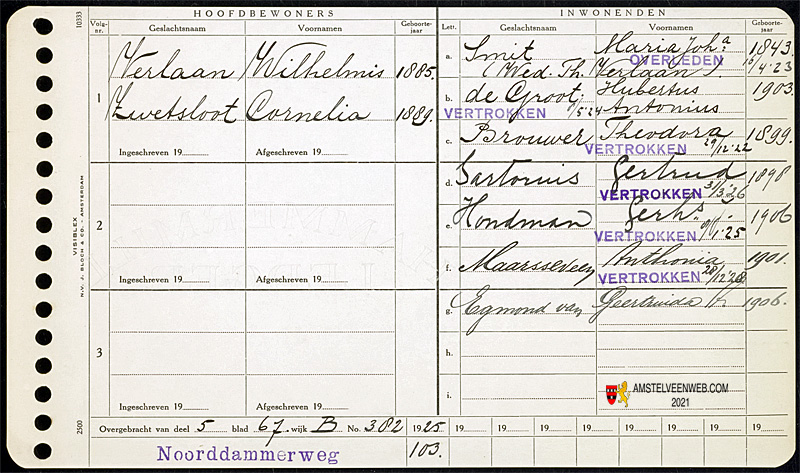 HOOFDBEWONERS
Volg-nr. Geslachtsnaam Voornamen Geboorte-jaar
1 Verlaan Wilhelmis 1885.
Zwetsloot Cornelia 1889.
Ingeschreven 19 Afgeschreven 19
2
Ingeschreven 19 Afgeschreven 19
3
Ingeschreven 19 Afgeschreven 19
INWONENDEN
Letr. Geslachtsnaam Voornamen Geboorte-jaar
a. Smit Maria Joh.a 1843.
OVERLEDEN
(Wed. Th. Verlaan). 16/4.23
b. de Groot Hubertus 1903.
VERTROKKEN /5.24 Antonius
c. Brouwer Theodora 1899.
VERTROKKEN 29/12.22
d. Sartorius Gertrud 1898
VERTROKKEN 31/3.26
e. Hondman Gerh.s 1906
VERTROKKEN /1.25
f. Maarsseveen Anthonia 1901.
VERTROKKEN 28/12.28
g. Egmond van Geertruida 1906.
h.
i.
Overgebracht van deel 5 blad 67. wijk B No. 382 1925 19 19 19 19 19 19 19 19
Noorddammerweg 103.
10333
VISIBLEX
N.V. J. BLOCH & CO. - AMSTERDAM
2500
AMSTELVEENWEB.COM
2021